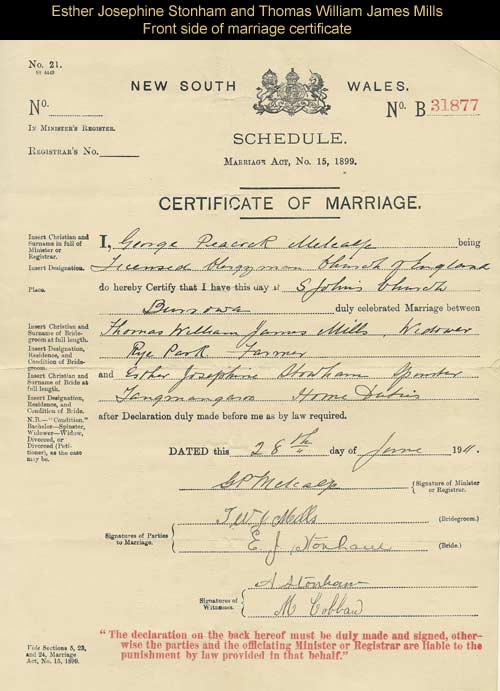 Esther Josephine Stonham and Thomas William James Mills
Front side of marriage certificate
No. 21.
NEW SOUTH WALES.
No.
No. B 31877
IN MINISTER'S REGISTER.
SCHEDULE.
REGISTRAR'S No.
MARRIAGE ACT, No. 15, 1899.
CERTIFICATE OF MARRIAGE.
Insert Christian and Surname in full of Minister or Registrar.
I, George Peacock Metcalfe being
Insert Designation.
Licensed Clergyman Church of England
Place.
do hereby Certify that I have this day at S Johns Church
Burrowa duly celebrated Marriage between
Insert Christian and Surname of Bridegroom at full length.
Thomas William James Mills, Widower
Insert Designation, Residence, and Condition of Bridegroom.
Rye Park Farmer
Insert Christian and Surname of Bride at full length.
and Esther Josephine Stonham Spinster
Insert Designation, Residence, and Condition of Bride.
Tangmangaroo Home Duties
N.B.—"Condition," Bachelor—Spinster, Widower—Widow, Divorced, or Divorced (Petitioner), as the case may be.
after Declaration duly made before me as by law required.
DATED this 28th day of June 1911.
GP Metcalfe
Signature of Minister or Registrar.
T W J Mills (Bridegroom.)
Signatures of Parties to Marriage.
E J Stonham (Bride.)
A Stonham
Signatures of Witnesses.
M Cobban
"The declaration on the back hereof must be duly made and signed, other-
wise the parties and the officiating Minister or Registrar are liable to the
punishment by law provided in that behalf."
Vide Sections 5, 23,
and 24, Marriage
Act, No. 15, 1899.